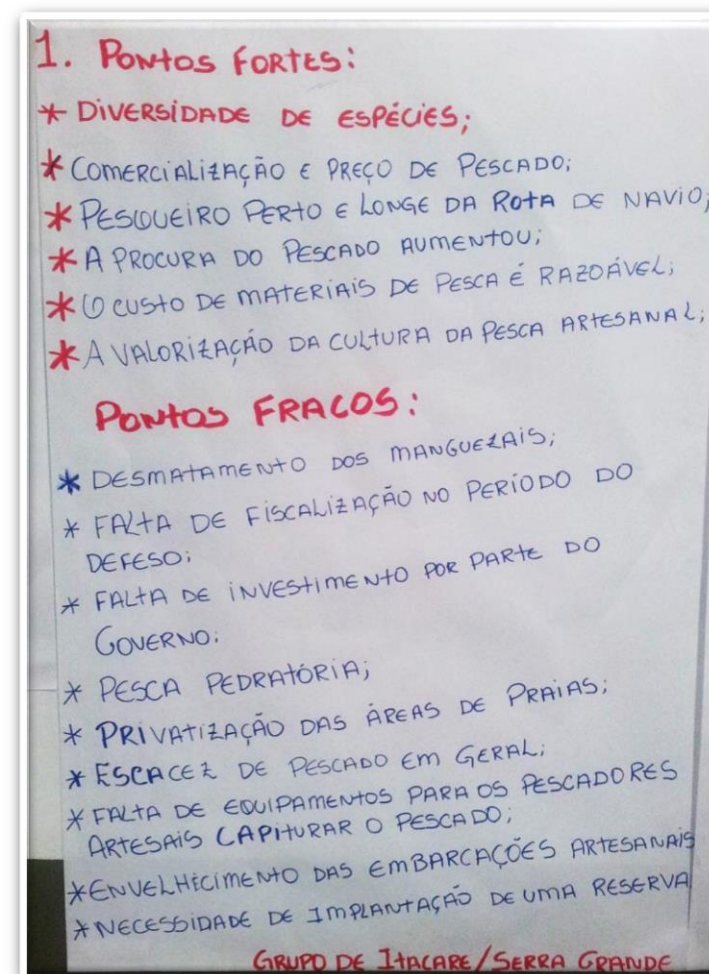 1. PONTOS FORTES:
* DIVERSIDADE DE ESPÉCIES;
* COMERCIALIZAÇÃO E PREÇO DE PESCADO;
* PESQUEIRO PERTO E LONGE DA ROTA DE NAVIO;
* A PROCURA DO PESCADO AUMENTOU;
* O CUSTO DE MATERIAIS DE PESCA É RAZOÁVEL;
* A VALORIZAÇÃO DA CULTURA DA PESCA ARTESANAL;
PONTOS FRACOS:
* DESMATAMENTO DOS MANGUEZAIS;
* FALTA DE FISCALIZAÇÃO NO PERÍODO DO
DEFESO;
* FALTA DE INVESTIMENTO POR PARTE DO
GOVERNO;
* PESCA PEDRATÓRIA;
* PRIVATIZAÇÃO DAS ÁREAS DE PRAIAS;
* ESCACEZ DE PESCADO EM GERAL;
* FALTA DE EQUIPAMENTOS PARA OS PESCADORES
ARTESAIS CAPITURAR O PESCADO;
* ENVELHECIMENTO DAS EMBARCAÇÕES ARTESANAIS
* NECESSIDADE DE IMPLANTAÇÃO DE UMA RESERVA
GRUPO DE ITACARE/SERRA GRANDE